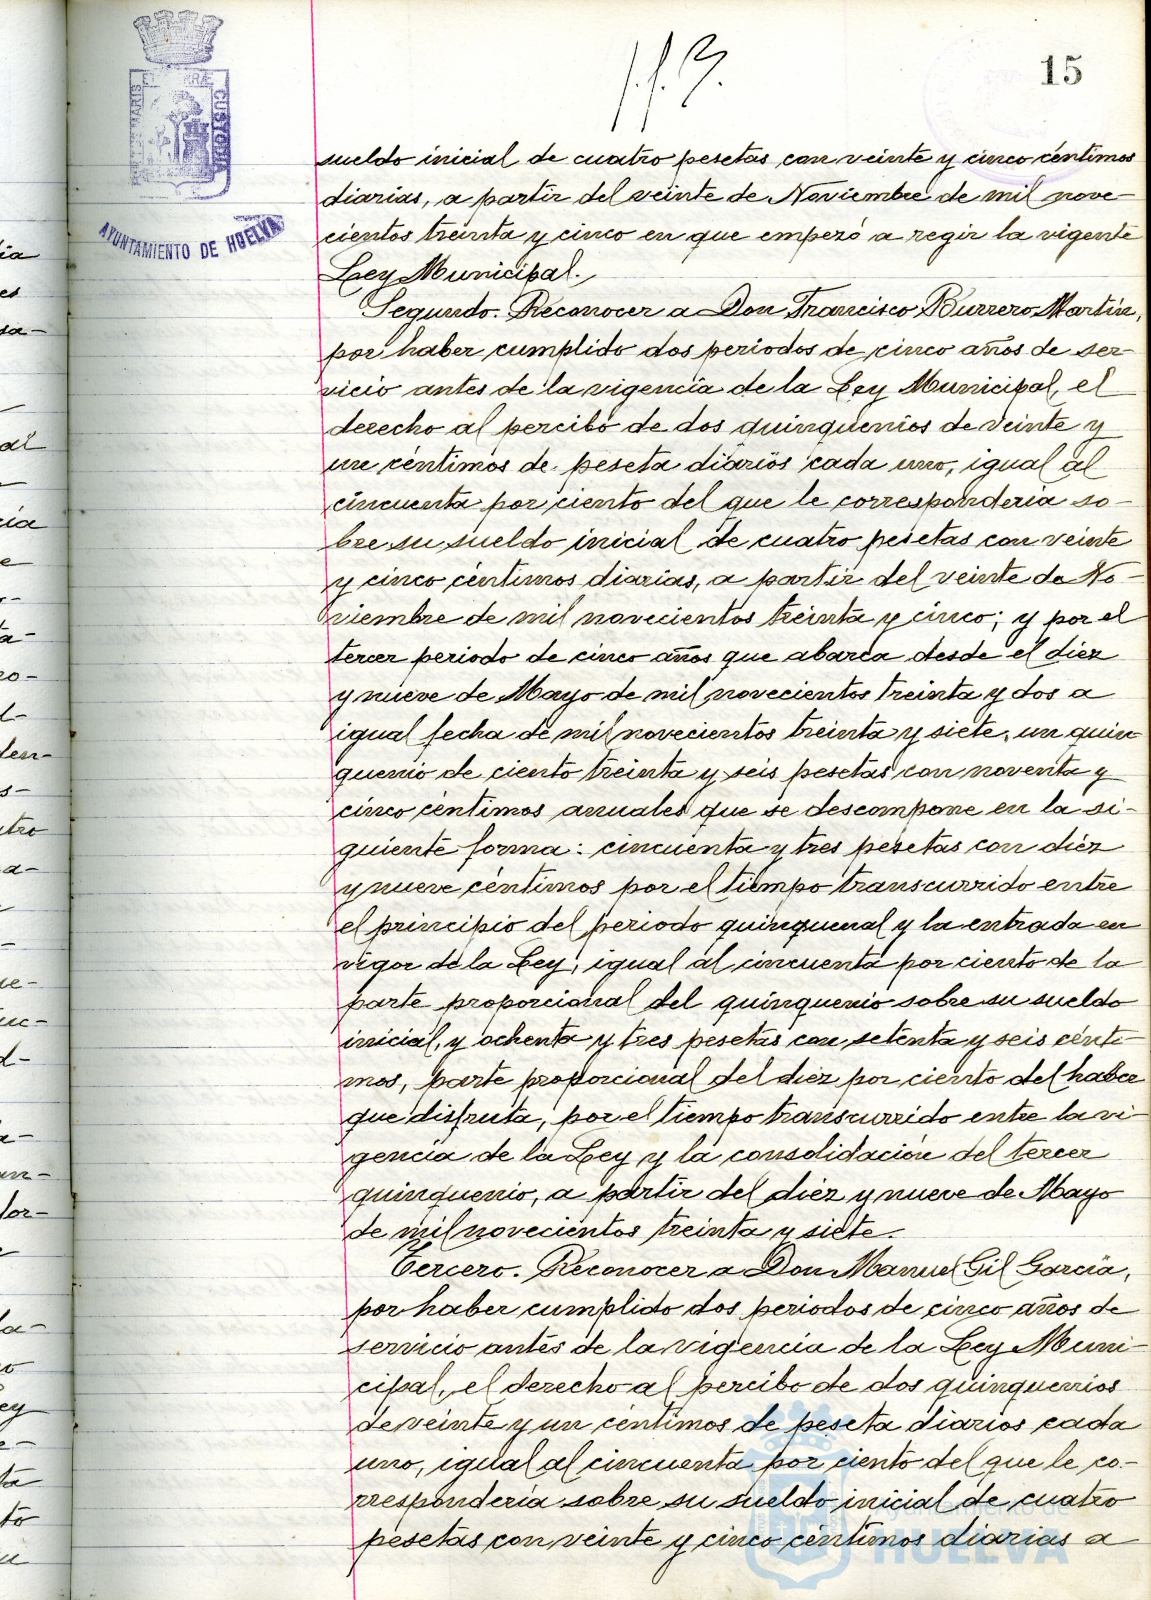 15
AYUNTAMIENTO DE HUELVA
sueldo inicial de cuatro pesetas con veinte y cinco céntimos
diarias, a partir del veinte de Noviembre de mil nove-
cientos treinta y cinco en que empezó a regir la vigente
Ley Municipal.
Segundo. Reconocer a Don Francisco Burrero Martín,
por haber cumplido dos periodos de cinco años de ser-
vicio antes de la vigencia de la Ley Municipal, el
derecho al percibo de dos quinquenios de veinte y
un céntimos de peseta diarios cada uno, igual al
cincuenta por ciento del que le correspondería so-
bre su sueldo inicial de cuatro pesetas con veinte
y cinco céntimos diarias, a partir del veinte de No-
viembre de mil novecientos treinta y cinco; y por el
tercer periodo de cinco años que abarca desde el diez
y nueve de Mayo de mil novecientos treinta y dos a
igual fecha de mil novecientos treinta y siete, un quin-
quenio de ciento treinta y seis pesetas con noventa y
cinco céntimos anuales que se descompone en la si-
guiente forma: cincuenta y tres pesetas con diez
y nueve céntimos por el tiempo transcurrido entre
el principio del periodo quinquenal y la entrada en
vigor de la Ley, igual al cincuenta por ciento de la
parte proporcional del quinquenio sobre su sueldo
inicial, y ochenta y tres pesetas con setenta y seis cénti-
mos, parte proporcional del diez por ciento del haber
que disfruta, por el tiempo transcurrido entre la vi-
gencia de la Ley y la consolidación del tercer
quinquenio, a partir del diez y nueve de Mayo
de mil novecientos treinta y siete.
Tercero. Reconocer a Don Manuel Gil García,
por haber cumplido dos periodos de cinco años de
servicio antes de la vigencia de la Ley Muni-
cipal, el derecho al percibo de dos quinquenios
de veinte y un céntimos de peseta diarios cada
uno, igual al cincuenta por ciento del que le co-
rrespondería sobre su sueldo inicial de cuatro
pesetas con veinte y cinco céntimos diarias a
Ayuntamiento de
HUELVA